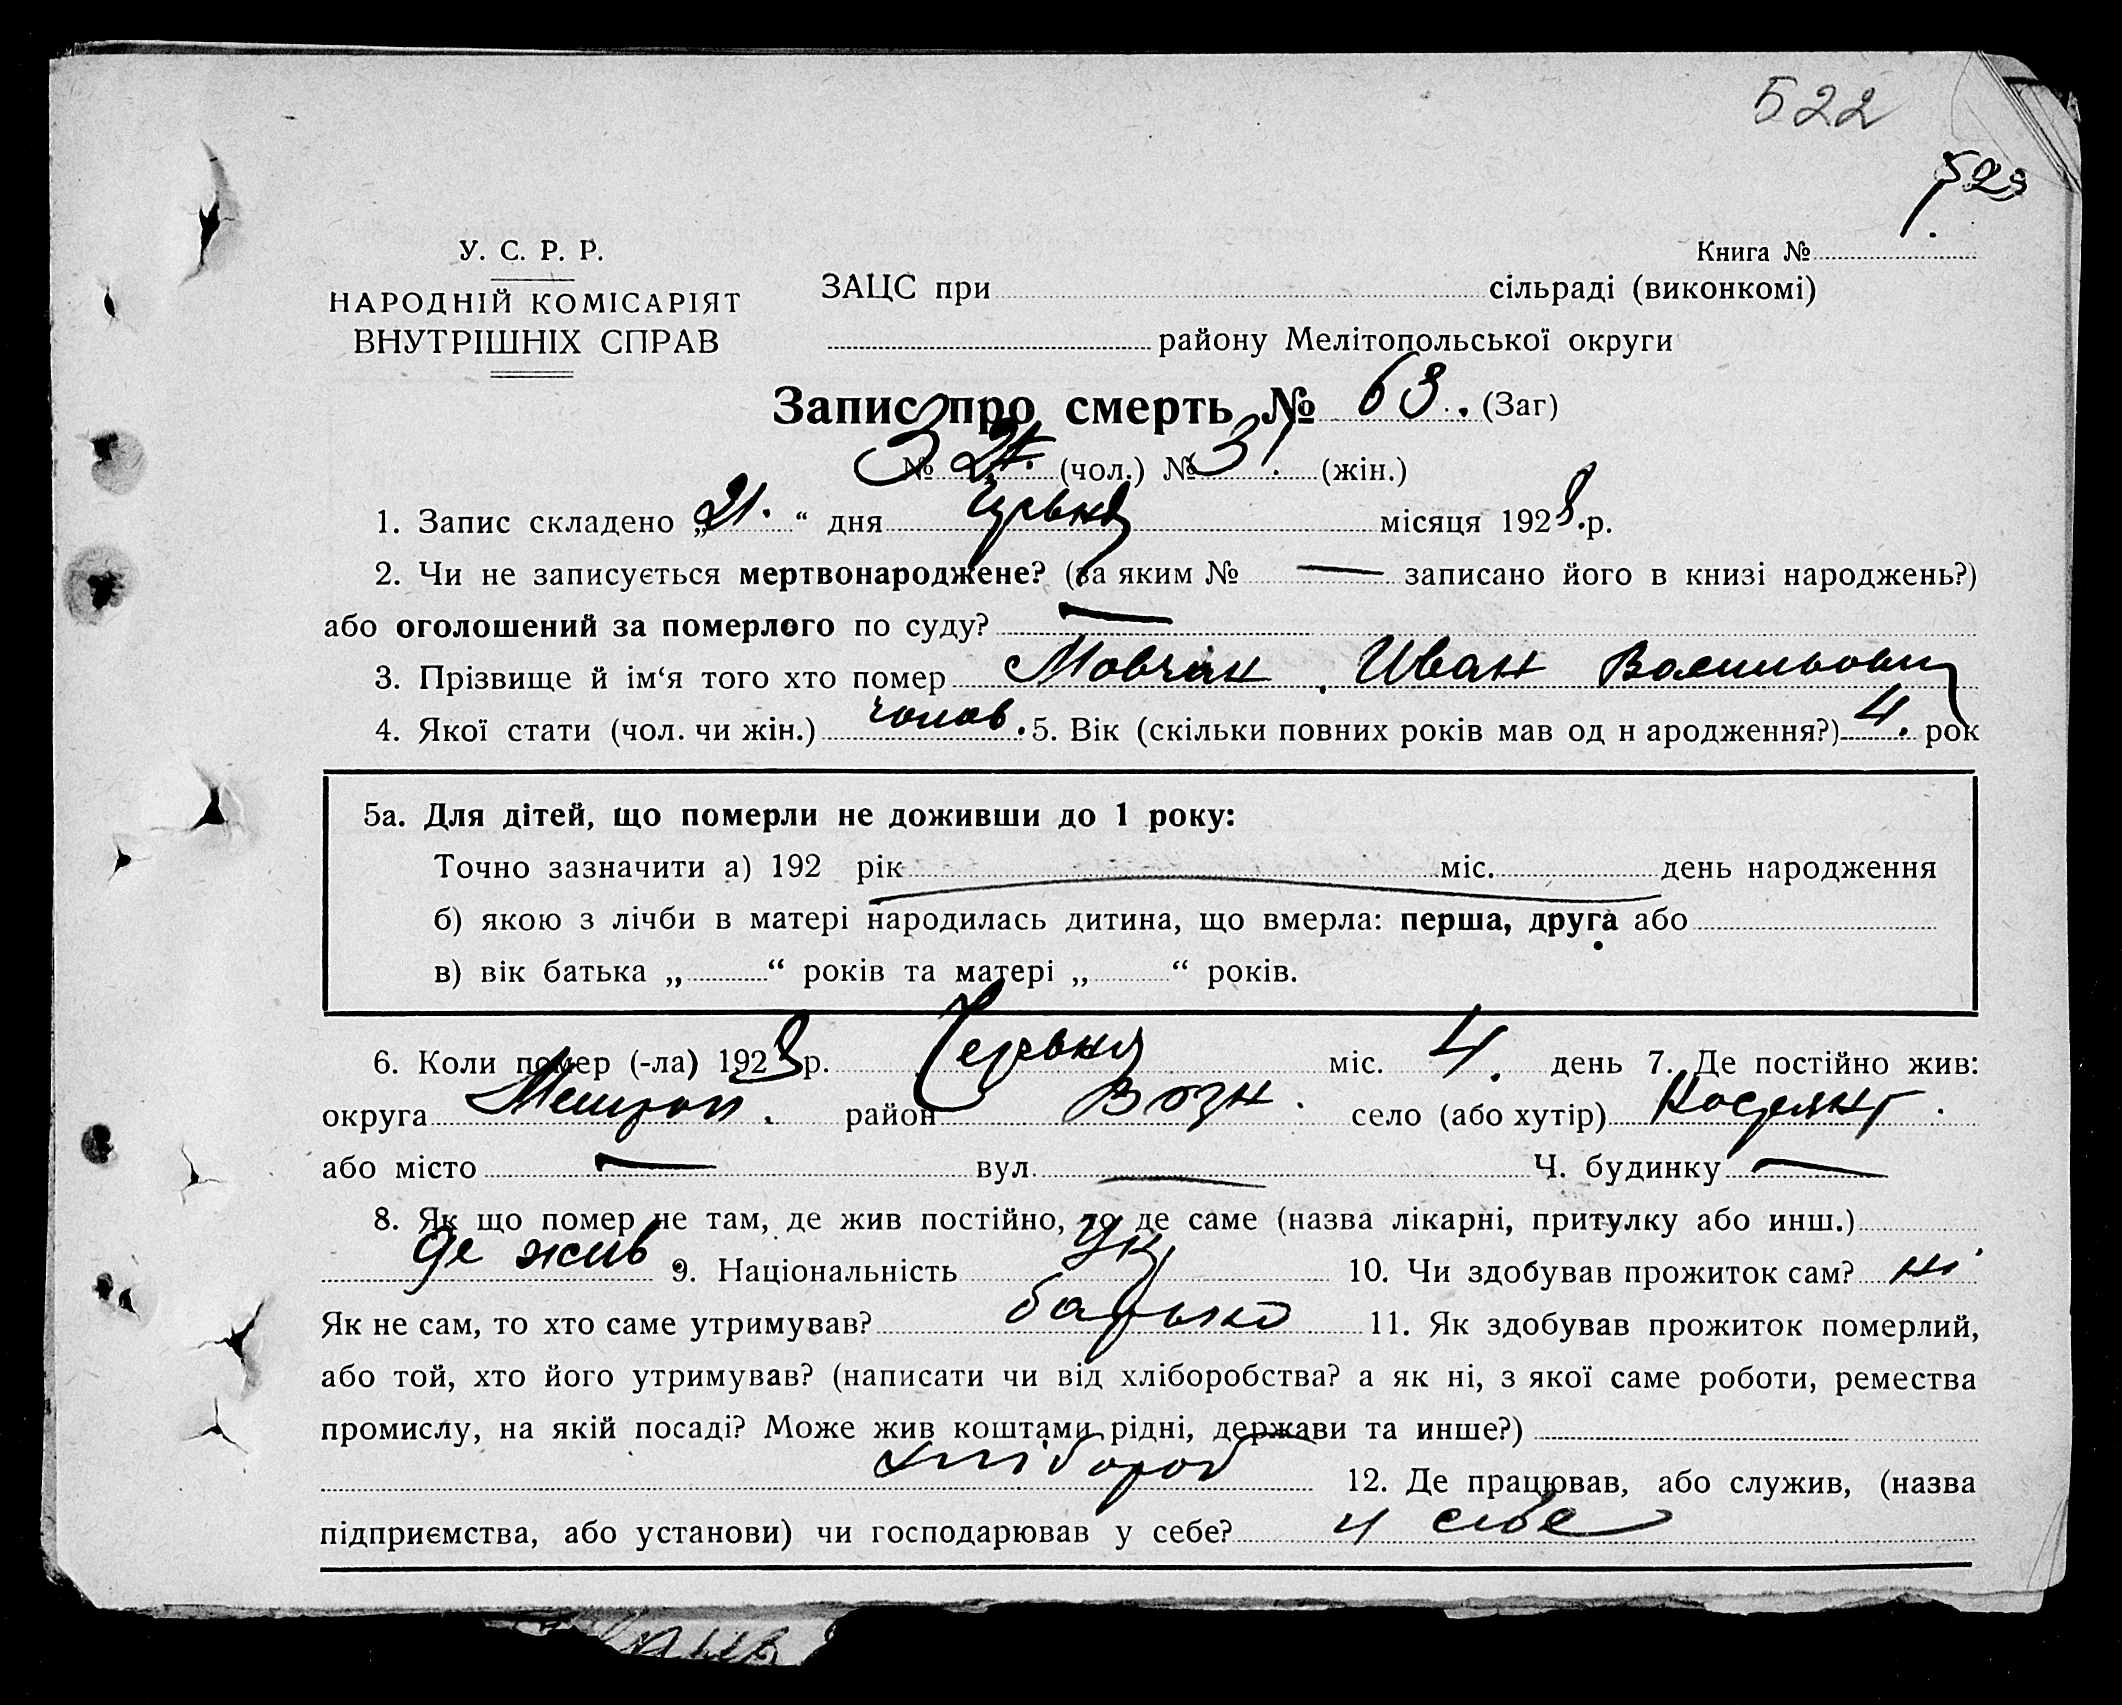 522
523
У. С. Р. Р.
НАРОДНІЙ КОМІСАРІЯТ
ВНУТРІШНІХ СПРАВ
Книга №
ЗАЦС при сільраді (виконкомі)
району Мелітопольської округи
Запис про смерть № 63. (Заг)
№ 32 (чол.) № 31. (жін.)
1. Запис складено „21.“ дня місяця 1928.р.
2. Чи не записується мертвонароджене? (за яким № — записано його в книзі народжень?)
або оголошений за померлого по суду? —
3. Прізвище й ім‘я того хто помер Мовчан Иван Васильович
4. Якої стати (чол. чи жін.) чолов. 5. Вік (скільки повних років мав од н ародження?) 4. рок
5а. Для дітей, що померли не доживши до 1 року:
Точно зазначити а) 192 рік міс. день народження
б) якою з лічби в матері народилась дитина, що вмерла: перша, друга або
в) вік батька „ “ років та матері „ “ років.
6. Коли помер (-ла) 1928 р. Червня міс. 4. день 7. Де постійно жив:
округа Мелітоп. район Возн. село (або хутір)
або місто — вул. — Ч. будинку —
8. Як що помер не там, де жив постійно, то де саме (назва лікарні, притулку або инш.)
де жив 9. Національність Ук 10. Чи здобував прожиток сам? ні
Як не сам, то хто саме утримував? батько 11. Як здобував прожиток померлий,
або той, хто його утримував? (написати чи від хліборобства? а як ні, з якої саме роботи, ремества
промислу, на якій посаді? Може жив коштами рідні, держави та инше?)
хлібороб 12. Де працював, або служив, (назва
підприємства, або установи) чи господарював у себе? у себе